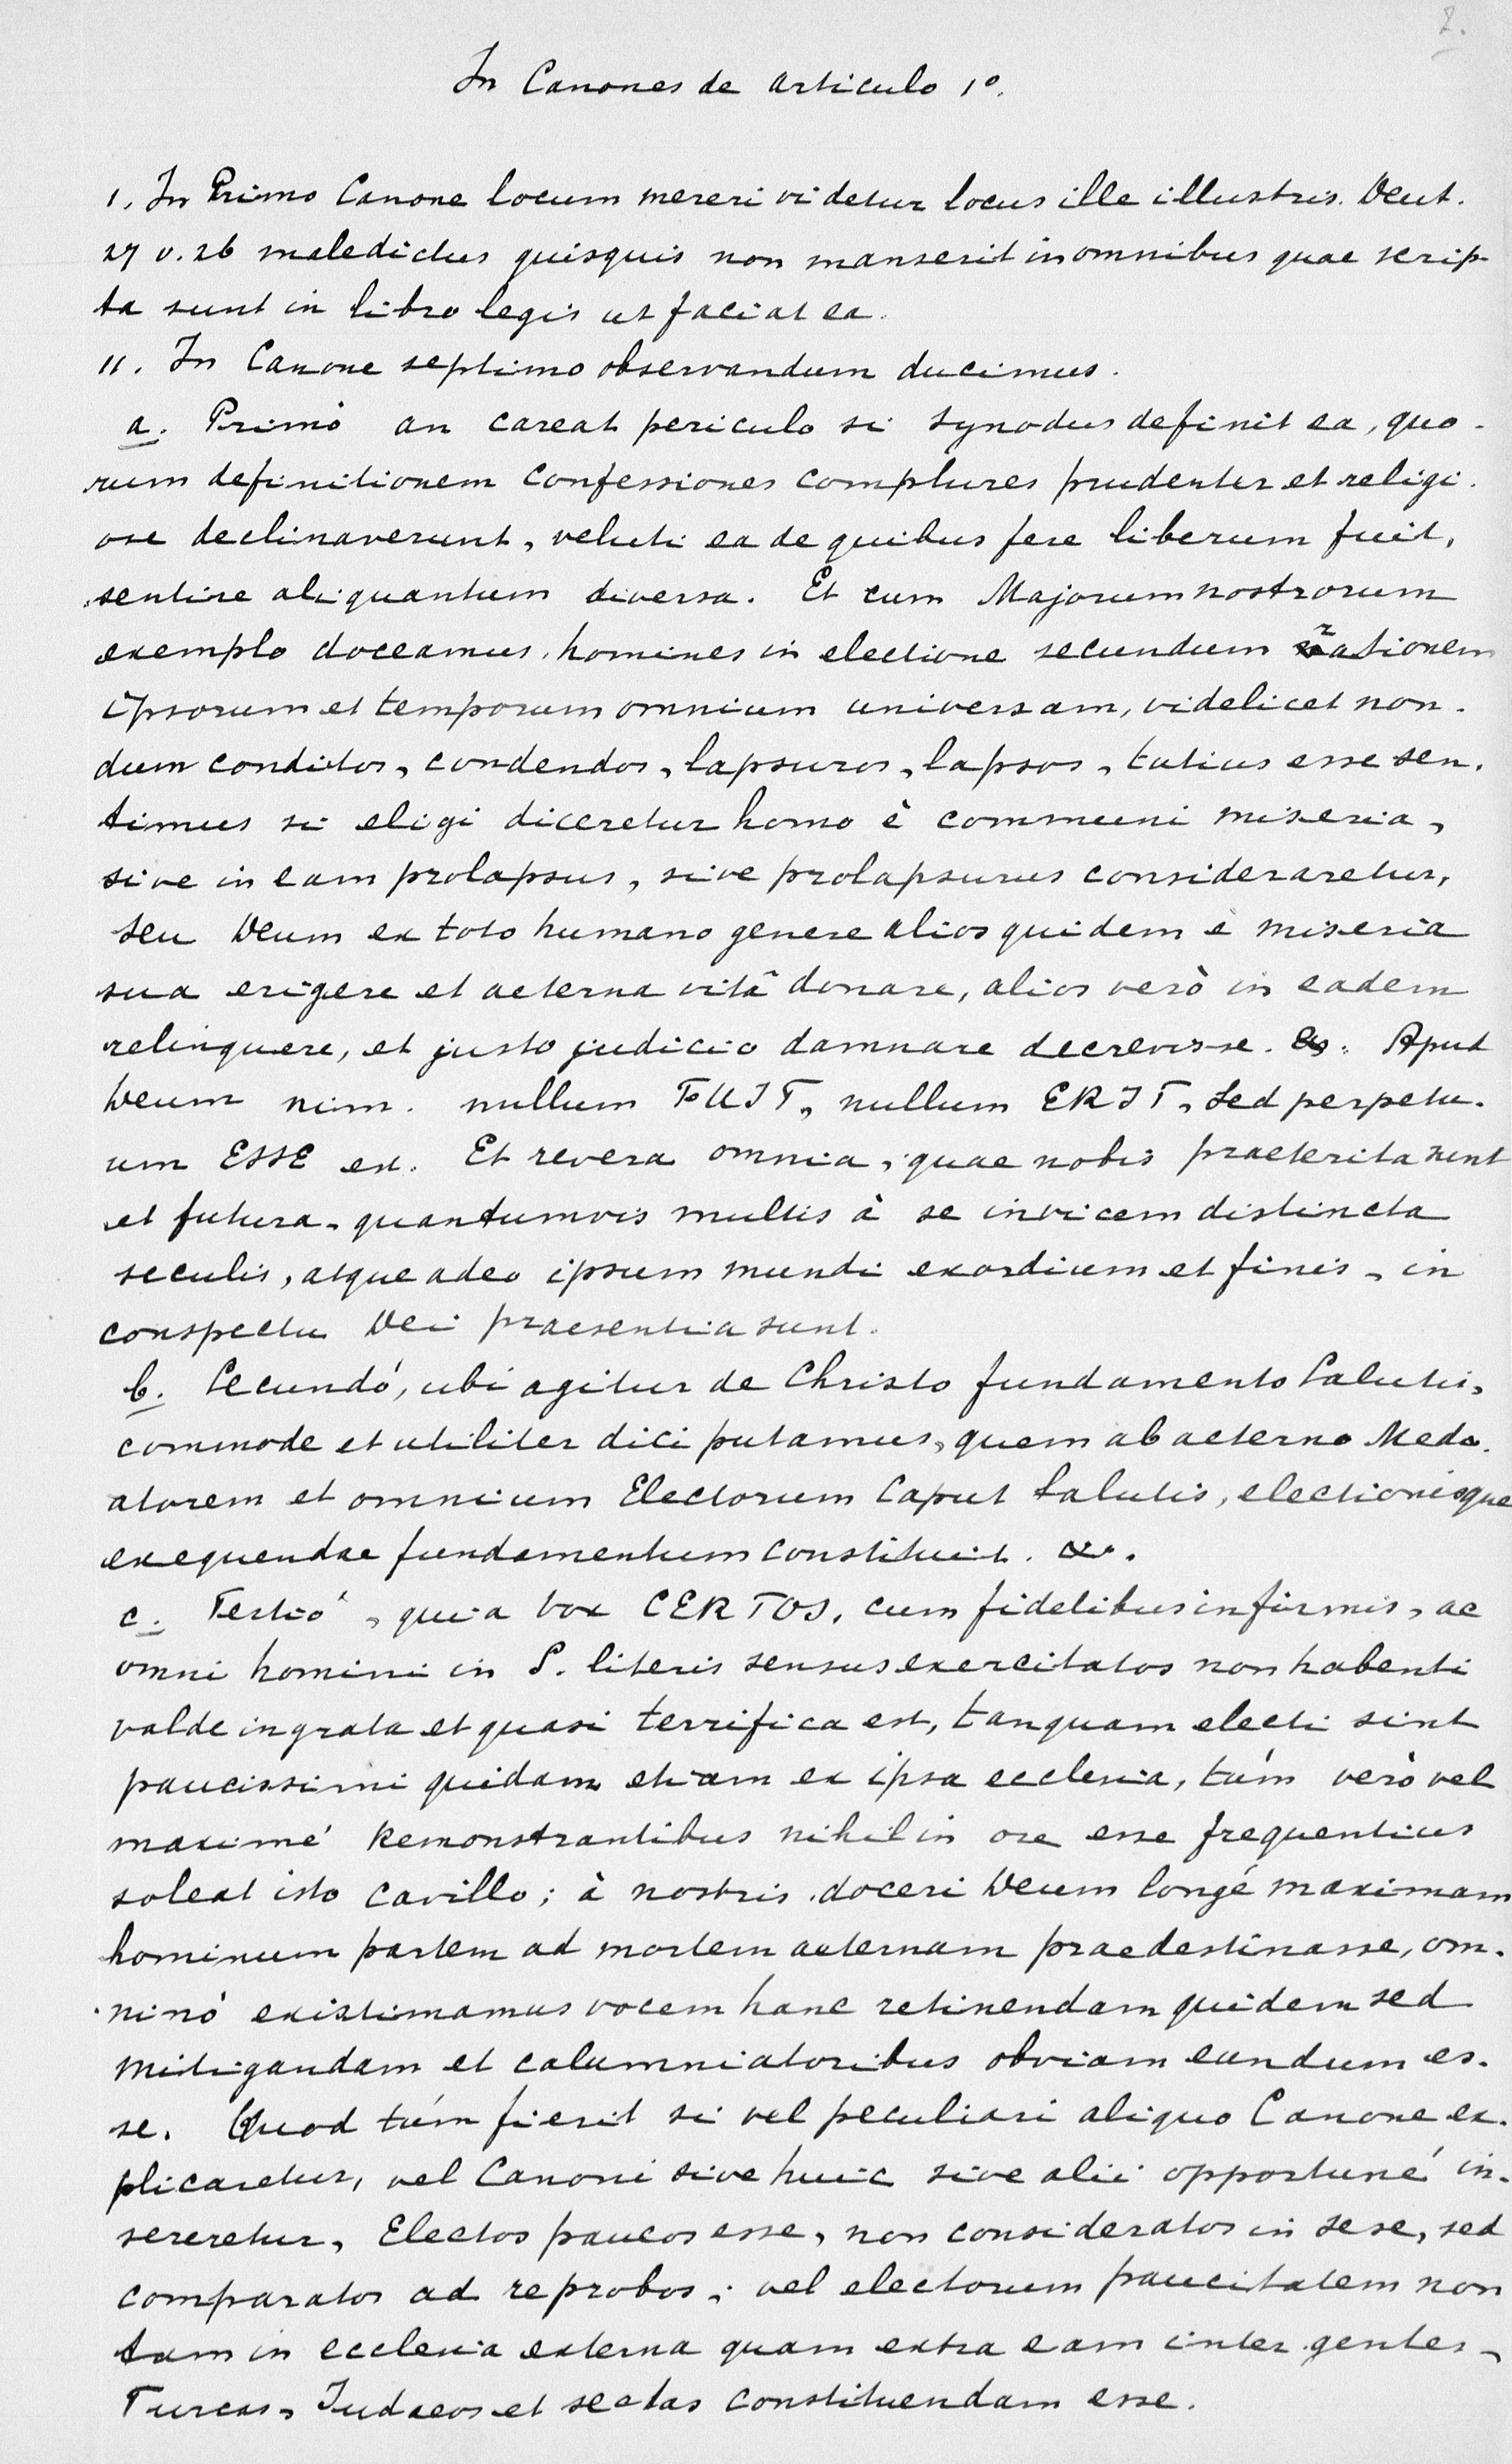 2.
In Canones de articulo 1º.
1. In Primo Canone locum mereri videtur locus ille illustris. Deut.
27 v. 26 maledictus quisquis non manserit in omnibus quae scrip-
ta sunt in libro legis ut faciat ea.
11. In Canone septimo observandum ducimus.
a. Primò an careat periculo si Synodus definit ea, quo-
rum definitionem Confessiones complures prudenter et religi-
ose declinaverunt, veluti ea de quibus fere liberum fuit,
sentire aliquantum diversa. Et cum Majorum nostrorum
exemplo doceamus, homines in electione secundum rationem
ipsorum et temporum omnium universam, videlicet non-
dum conditos, condendos, lapsuros, lapsos, tutius esse sen-
timus si eligi diceretur homo è communi miseria,
sive in eam prolapsus, sive prolapsurus consideraretur,
seu Deum ex toto humano genere alios quidem e miseria
sua erigere et aeterna vitâ donare, alios verò in eadem
relinquere, et justo judicio damnare decrevisse. Apud
Deum nim. nullum FUIT, nullum ERIT, sed perpetu-
um ESSE est. Et revera omnia, quae nobis praeterita sunt
et futura, quantumvis multis à se invicem distincta
seculis, atque adeo ipsum mundi exordium et finis, in
conspectu Dei praesentia sunt.
b. Secundó, ubi agitur de Christo fundamento Salutis,
commode et utiliter dici putamus, quem ab aeterno Medi-
atorem et omnium Electorum Caput Salutis, electionisque
exequendae fundamentum constituit.
c. Tertió, quia vox CERTOS, cum fidelibus infirmis, ac
omni homini in S. literis sensus exercitatos non habenti
valde ingrata et quasi terrifica est, tanquam electi sint
paucissimi quidam etiam ex ipsa ecclesia, túm verò vel
maximé Remonstrantibus nihil in ore esse frequentius
soleat isto cavillo; à nostris doceri Deum longé maximam
hominum partem ad mortem aeternam praedestinasse, om-
ninó existimamus vocem hanc retinendam quidem sed
mitigandam et calumniatoribus obviam eundum es-
se. Quod túm fierit si vel peculiari aliquo Canone ex-
plicaretur, vel Canoni sive huic sive alii opportuné in-
sereretur, Electos paucos esse, non consideratos in sese, sed
comparatos ad reprobos; vel electorum paucitatem non
tam in ecclesia externa quam extra eam inter gentes,
Turcas, Judaeos et sectas constituendam esse.